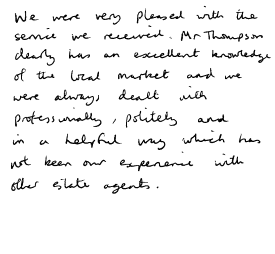 We were very pleased with the
service we received. Mr Thompson
clearly has an excellent knowledge
of the local market and we
were always dealt with
professionally, politely and
in a helpful way which has
not been our experience with
other estate agents.